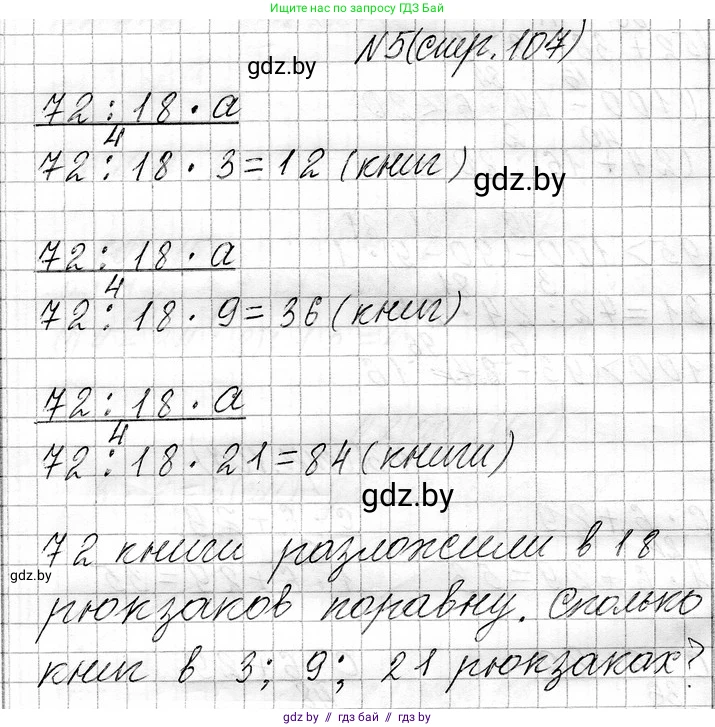 Ищите нас по запросу ГДЗ Бай
N5(стр. 107)
gdz.by
72 : 18 · a
4
72 : 18 · 3 = 12 (книг)
gdz.by
72 : 18 · a
4
72 : 18 · 9 = 36 (книг)
72 : 18 · a
4
72 : 18 · 21 = 84 (книги)
gdz.by
72 книги разложили в 18
gdz.by
рюкзаков поравну. Сколько
книг в 3; 9; 21 рюкзаках?
gdz.by // гдз бай // gdz.by